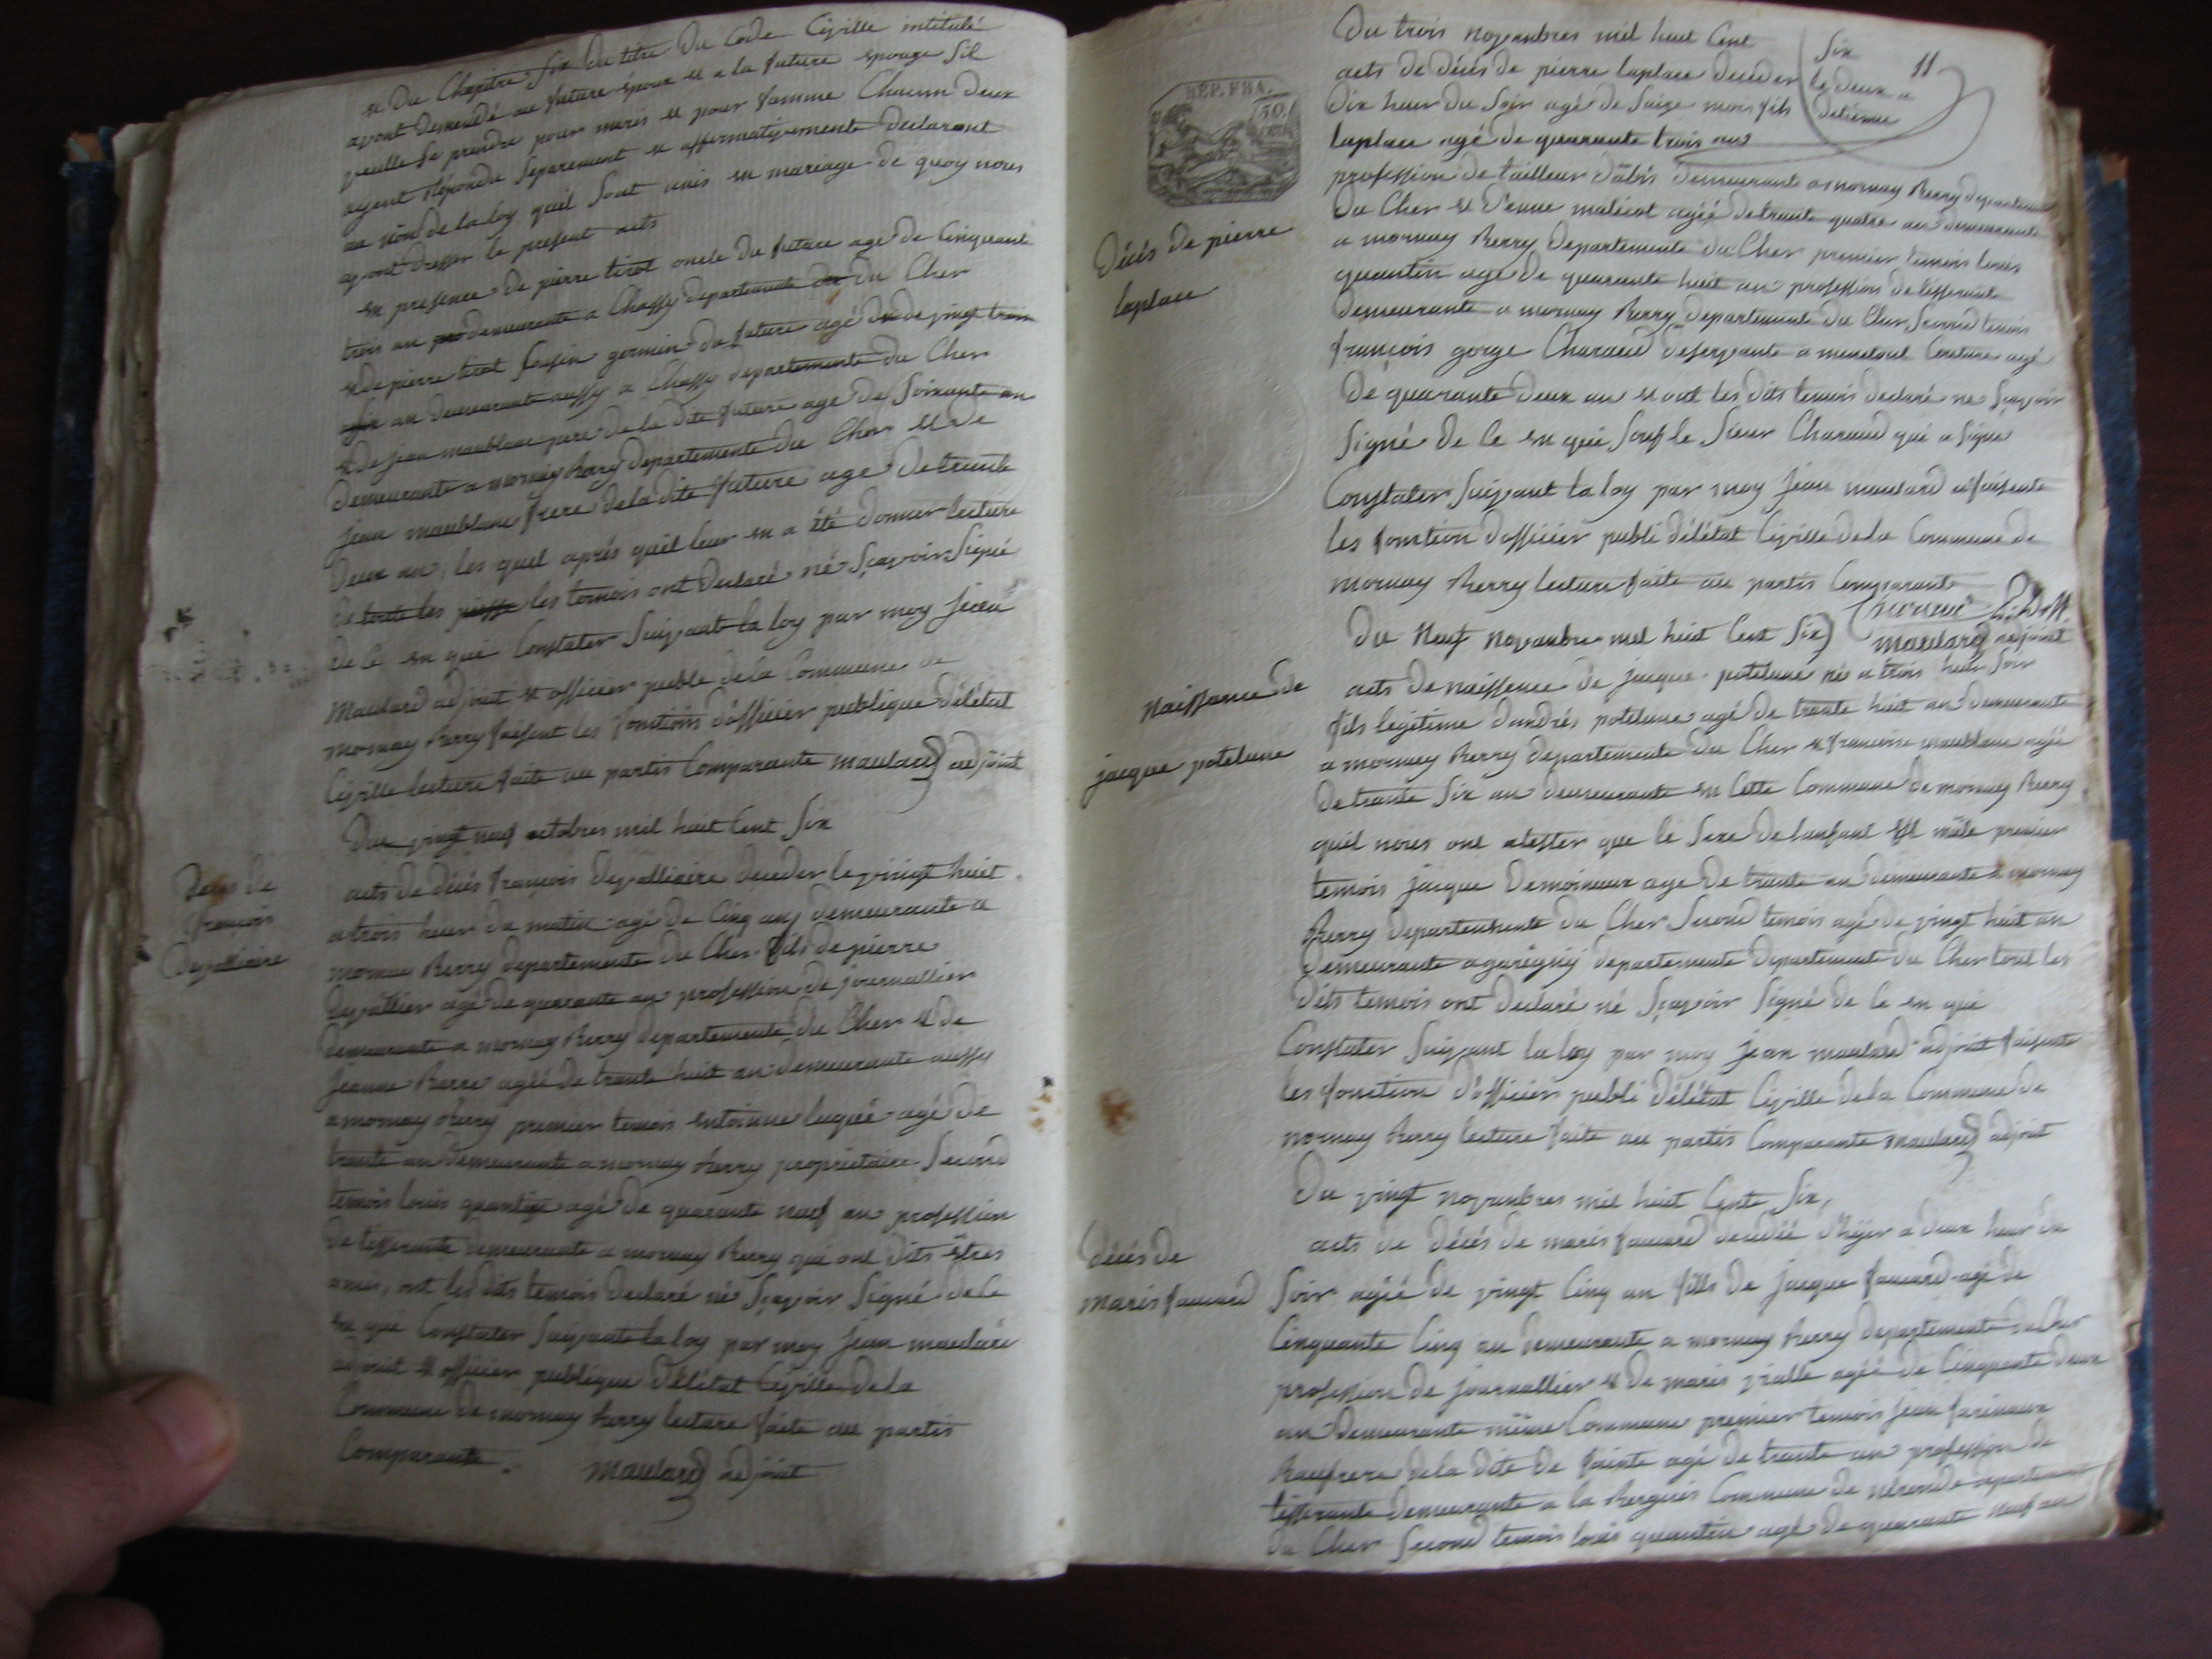 et Du Chapitre six du titre Du Code Civille intitulé
ayant demendé au future épour et a la future epouge sil
veulle se prendre pour maris et pour famme Chacun deux
ayent répondu separement et affermativemente declaront
au nom de la loy quil sont unis en mareage de quoy nous
ayont dresser le present acts
en presence de pierre tirot oncle du future age de Cinquante
trois an demeurante a Chassy departemente du Cher
et de pierre tirot cousin germin du future agé de vingt trois
an demeurante aussy a Chassy departemente du Cher
et de jean maublanc pere de la dite future age de soixante an
demeurante a mornay Berry departemente du Cher et de
jean maublanc frere de la dite future age de trante
deux an, les quel aprés quil leur en a été donner lecture
de toute les piesse les temois ont declaré né sçavoir signé
de ce en qui Constater suivant la loy par moy jean
maulard adjoint et officier publc de la Commune de
mornay Berry faisent les fonctions d'officier publique délétat
Civille lecture faite au partis Comparante maulard adjoint
Du vingt neuf octobres mil huit Cent six
Décés de
françois
Devalliaire
acts de décés françois Devalliaire deceder le vingt huit
a trois heur du matin agé de Cinq ans demeurante a
mornay Berry departemente du Cher fils de pierre
Devallier agé de quarante an profession de journallier
demeurante a mornay Berry departemente du Cher et de
jeanne Barre agéé de trante huit an demeurante aussy
a mornay Berry premier temois entoinne luquée agé de
trante an demeurante a mornay Berry proprietaire second
temois louis quantin agé de quarante neuf an profession
de tisserante demeurante a mornay Berry qui ont dits éstres
amis, ont les dits temois declaré né sçavoir signé de ce
en qui Constater suivante la loy par moy jean maulard
adjoint et officier publique délétat Civille de la
Commune de mornay Berry lecture faite au partis
Comparante maulard adjoint
11
REP. FRA.
50
Du trois novanbres mil huit Cent six
acts de décés de pierre laplace deceder le deux a
Dix heur du soir agé de saize mois fils détienne
laplace agé de quarante trois ans
profession de tailleur dabis demeurante a mornay Berry departement
du Cher et d'enne malicot agéé de trante quatre an demeurante
a mornay Berry departemente du Cher premier temois louis
quantin age de quarante huit an profession de tisserante
demeurante a mornay Berry departemente du Cher second temois
françois gorge Charaud deservante a menetout Couture agé
De quarante deux an et ont les dits temois declaré ne sçavoir
signé de ce en qui souf le sieur Charaud qui a signe
Constater suivant la loy par moy jean maulard faisente
les fonction dofficier publi délétat Civille de la Commune de
mornay Berry lecture faite au partis Comparante
maulard adjoint
Décés de pierre
laplace
Du Neuf novanbre mil huit Cent six
naissance de
jacque potelune
acts de naissence de jacque potelune né a trois heur soir
fils legitime dandrés potelune agé de trante huit an demeurante
a mornay Berry departemente du Cher et francoise maublanc agéé
de trante six an demeurante en cette Commune de mornay Berry
quil nous ont atester que le sexe de lanfant est mâle premier
temois jacque Demoineux age de trante an demeurante a mornay
Berry departemente du Cher second temois agé de vingt huit an
demeurante a garégny departemente departemente du Cher tout les
dits temois ont declaré né sçavoir signé de ce en qui
Constater suivant la loy par moy jean maulard adjoint faisente
les fonction d'officier publi délétat Civille de la Commune de
mornay Berry lecture faite au partis Comparante maulard adjoint
Du vingt novanbres mil huit Cente six,
décés de
maris faucard
acts de décés de maris faucard decedée d'hyer a deux heur du
soir agéé de vingt Cinq an fills de jacque faucard agé de
Cinquante Cinq an demeurante a mornay Berry departemente du Cher
profession de journallier et de maris vialle agéé de Cinquante deux
an demeurante même Commune premier temois jean farinaux
Baufrere de la dite de fainte agé de trente an profession de
tisserante demeurante a la Commune de nérondes departement
du Cher second temois louis quantin agé de quarante neuf an